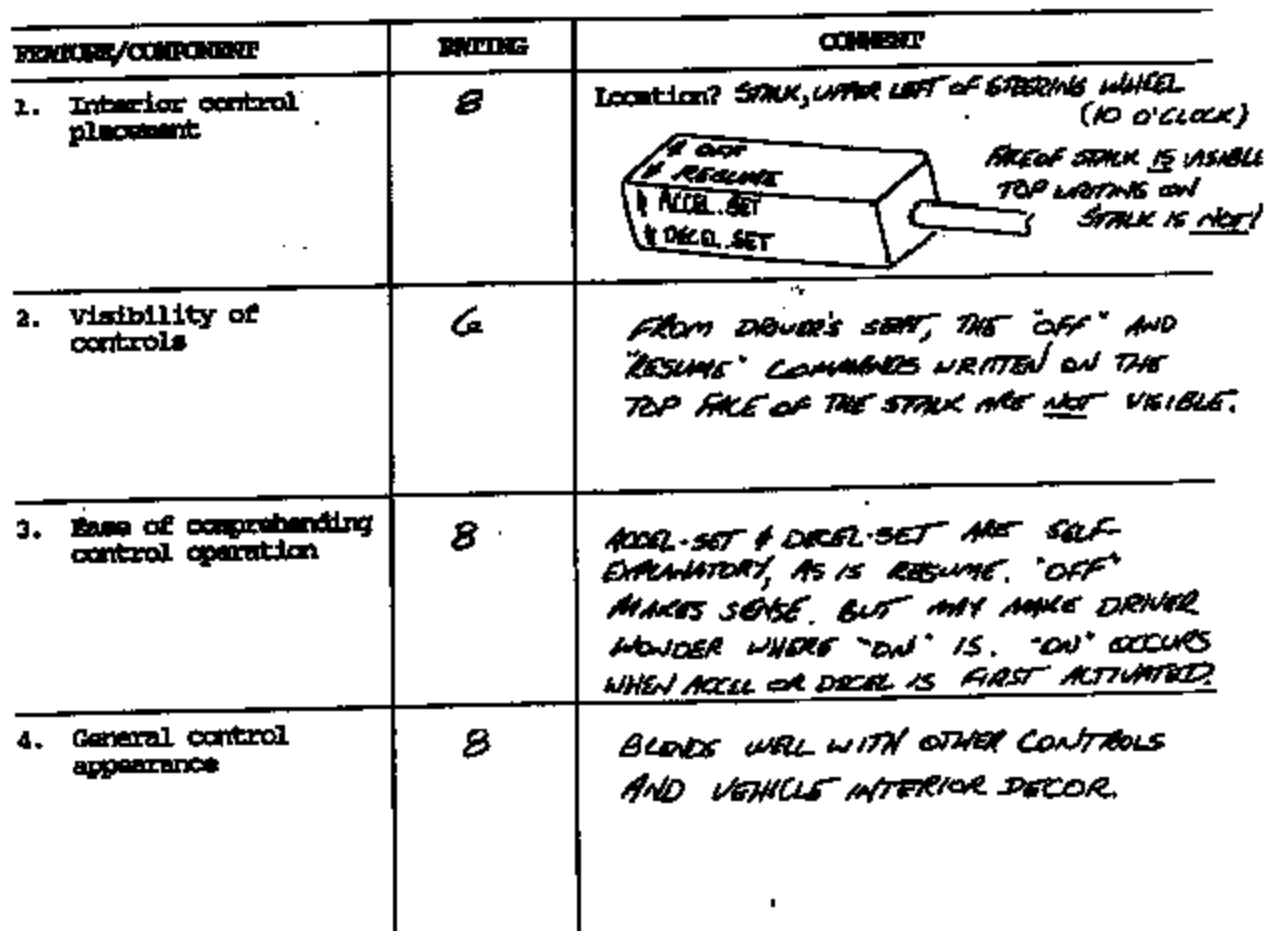 FEATURE/COMPONENT RATING COMMENT
1. Interior control placement 8 Location? STALK, UPPER LEFT OF STEERING WHEEL
(10 O'CLOCK)
# OFF
# RESUME
# ACCEL..SET
# DECEL..SET
FACE OF STALK IS VISIBLE
TOP WRITING ON
STALK IS NOT!
2. Visibility of controls 6 FROM DRIVER'S SEAT, THE "OFF" AND
"RESUME" COMMANDS WRITTEN ON THE
TOP FACE OF THE STALK ARE NOT VISIBLE.
3. Ease of comprehending control operation 8 ACCEL-SET & DECEL-SET ARE SELF-
EXPLANATORY, AS IS RESUME. "OFF"
MAKES SENSE. BUT MAY MAKE DRIVER
WONDER WHERE "ON" IS. "ON" OCCURS
WHEN ACCEL OR DECEL IS FIRST ACTIVATED.
4. General control appearance 8 BLENDS WELL WITH OTHER CONTROLS
AND VEHICLE INTERIOR DECOR.